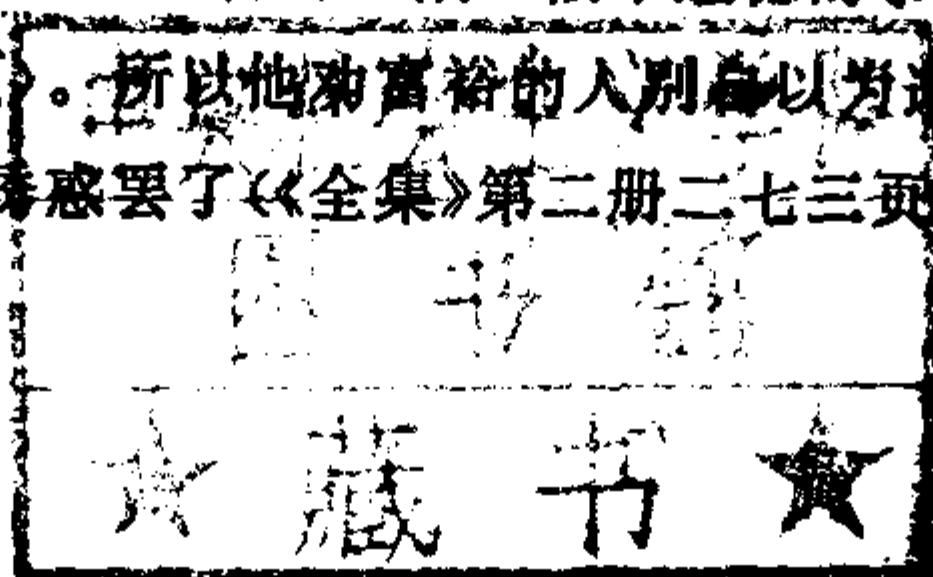 。所以他劝富裕的人别自以为
惑罢了(《全集》第二册二七三页
图书馆
★藏书★